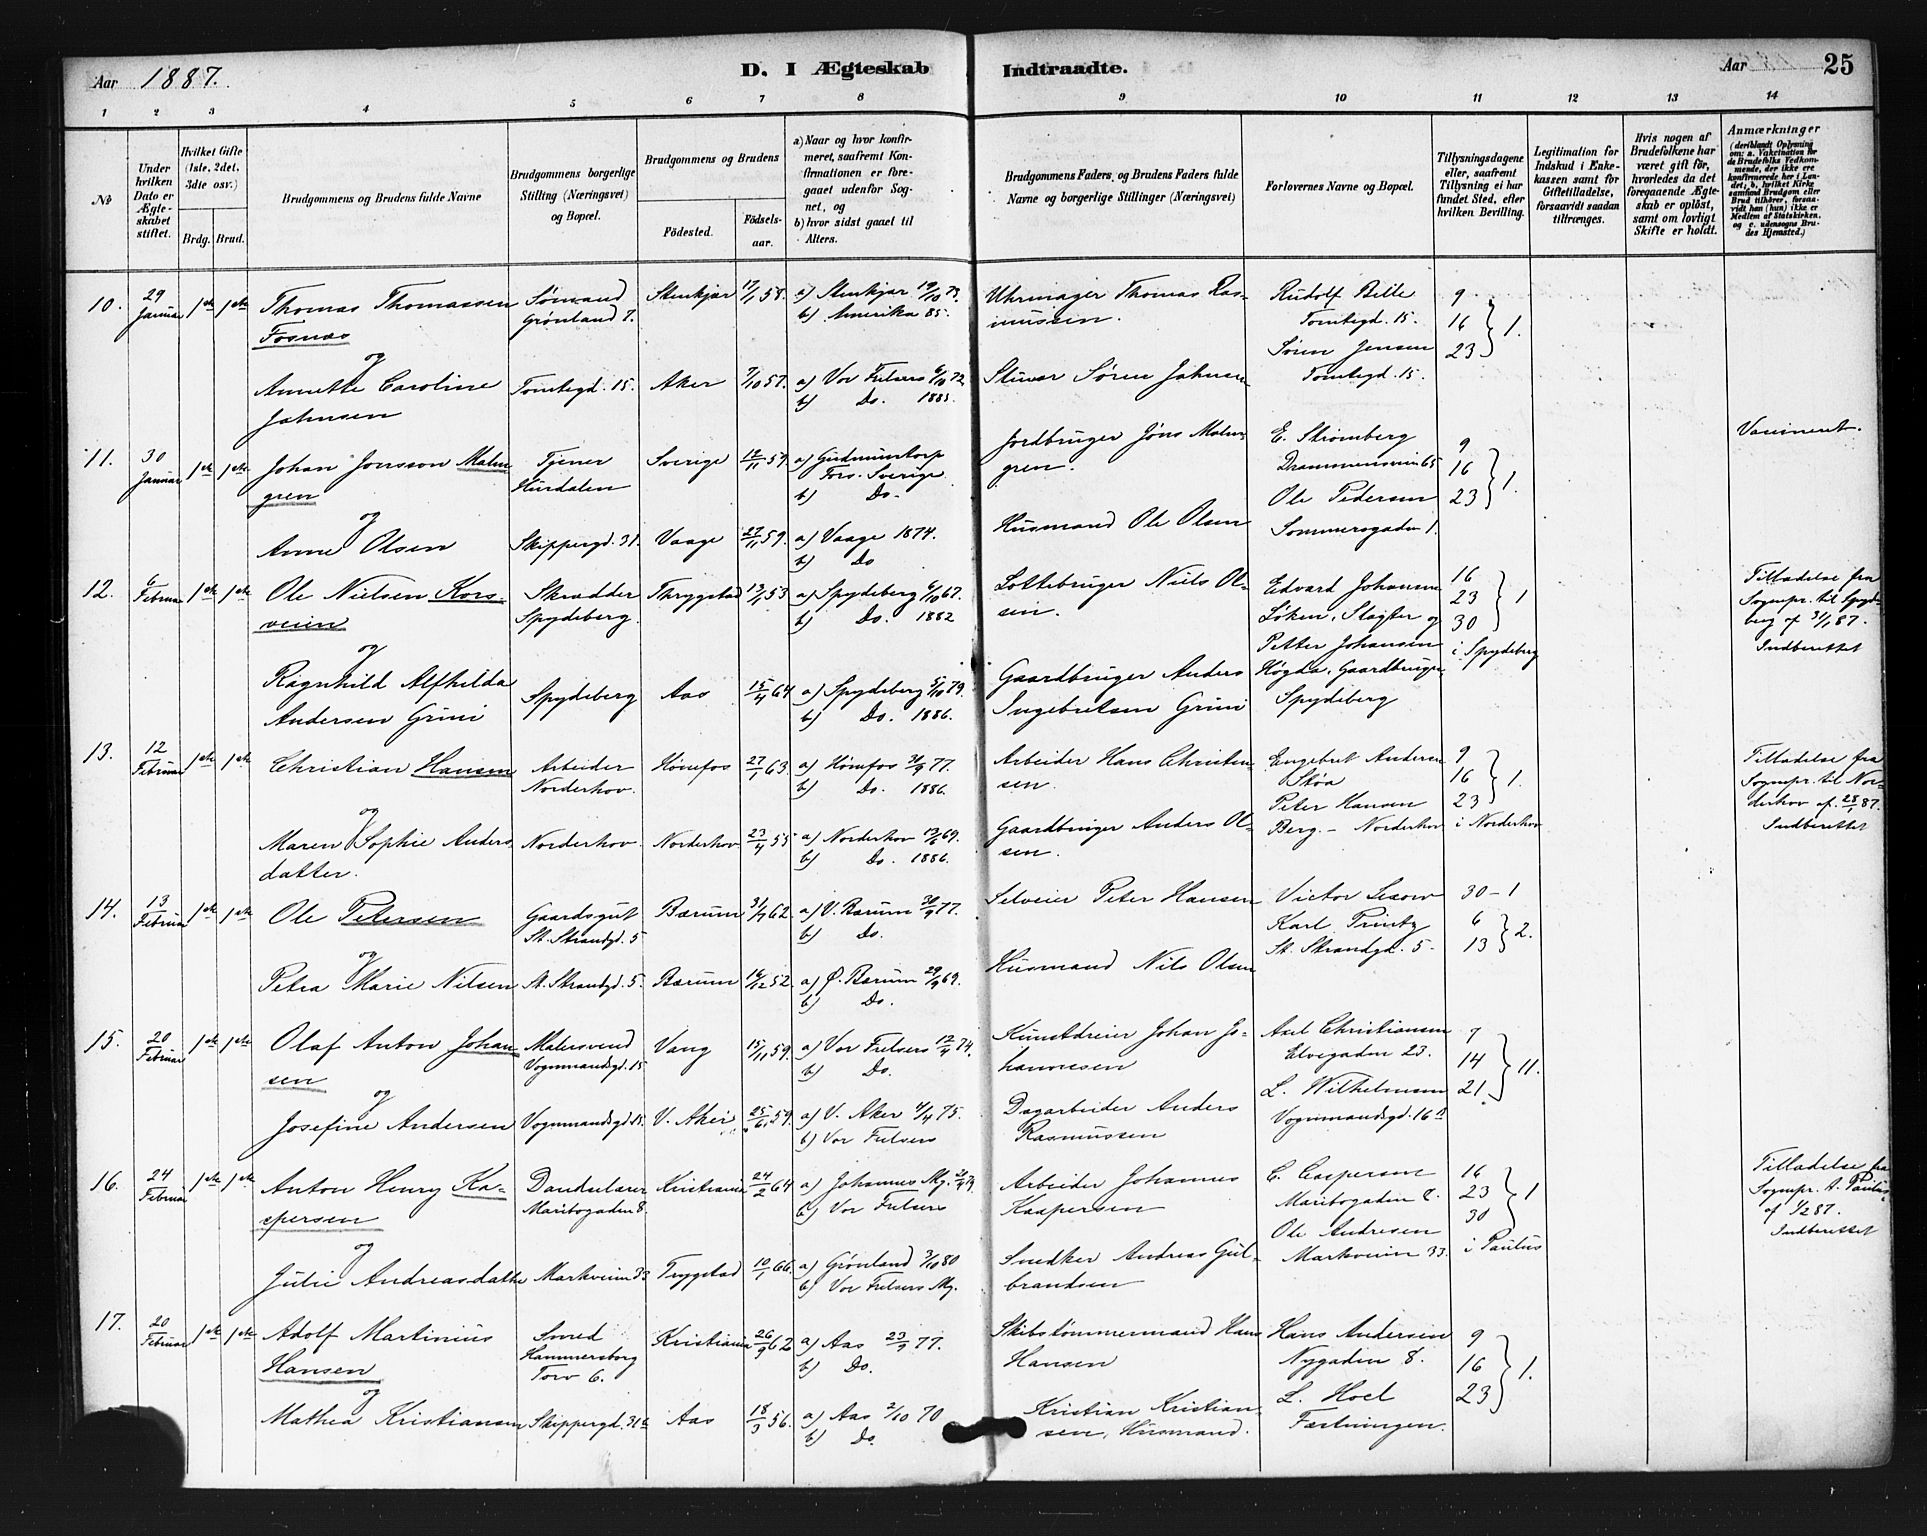 Aar 1887.
D. I Ægteskab Indtraadte.
Aar 25
1 2 3 4 5 6 7 8 9 10 11 12 13 14
No
Under hvilken Dato er Ægteskabet stiftet.
Hvilket Gifte (1ste, 2det, 3die osv.)
Brdg. Brud.
Brudgommens og Brudens fulde Navne
Brudgommens borgerlige Stilling (Næringsvei) og Bopæl.
Brudgommens og Brudens
Fødested. Fødsels-aar.
a) Naar og hvor konfirmeret, saafremt Konfirmationen er foregaaet udenfor Sognet, og
b) hvor sidst gaaet til Alters.
Brudgommens Faders, og Brudens Faders fulde Navne og borgerlige Stillinger (Næringsvei)
Forlovernes Navne og Bopæl.
Tillysningsdagene eller, saafremt Tillysning ei har fundet Sted, efter hvilken Bevilling.
Legitimation for Indskud i Enkekassen samt for Giftetilladelse, forsaavidt saadan tiltrænges.
Hvis nogen af Brudefolkene har været gift før, hvorledes da det foregaaende Ægteskab er opløst, samt om lovligt Skifte er holdt.
Anmærkninger (deriblandt Oplysning om: a. Vaksination for de Brudefolks Vedkommende, der ikke ere konfirmerede her i Landet; b. hvilket Kirkesamfund Brudgom eller Brud tilhører, forsaavidt han (hun) ikke er Medlem af Statskirken, og c. udensogns Brudes Hjemsted.)
10. 29 Januar 1ste 1ste Thomas Thomassen Fosnæs Sømand Grønland 7. Stenkjær 17/1 58. a) Stenkjær 19/10 73. b) Amerika 85. Uhrmager Thomas Rasmussen. Rudolf Bille Tomtegd. 15. Søren Jensen Tomtegd. 15. 9 16 23 } 1.
og
Annette Caroline Johnsen Tomtegd. 15. Aker 7/10 57. a) Vor Frelsers 6/10 72 b) Do. 1885. Stuer Søren Johnsen
11. 30 Januar 1ste 1ste Johan Jonsson Malmgren Tjener Hurdalen Sverige 12/11 59. a) Gudmuntorp Fors. Sverige b) Do. Jordbruger Jöns Malmgren. E. Strømberg Drammensvein 65 Ole Pedersen Sommersgaden 1. 9 16 23 } 1. Vaccineret.
og
Anne Olsen Skippergd. 31. Vaage 27/11 59. a) Vaage 1874. b) Do Husmand Ole Olsen
12. 6 Februar 1ste 1ste Ole Nielsen Korsveien Skrædder Spydeberg. Thrygstad 13/4 53 a) Spydeberg 6/10 67. b) Do. 1882 Lottebruger Niels Olsen. Edvard Johansen Løken, Slagter og Petter Johansen Høgda, Gaardbruger Spydeberg 16 23 30 } 1 i Spydeberg Tilladelse fra Sognepr. til Spydeberg af 31/1 87. Indberettet
og
Ragnhild Alfhilda Andersen Grini Spydeberg Aas 15/4 64 a) Spydeberg 5/10 79. b) Do. 1886. Gaardbruger Anders Ingebretsen Grini
13. 12 Februar 1ste 1ste Christian Hansen Arbeider Norderhov. Hønefos 27/1 63. a) Hønefos 3/9 77. b) Do. 1886. Arbeider Hans Christensen. Engebret Andersen Støa Peter Hansen Berg. - Norderhov 9 16 23 } 1. i Norderhov Tilladelse fra Sognepr. til Norderhov af. 28/1 87. Indberettet
og
Maren Sophie Andersdatter. Norderhov. Norderhov 23/4 55 a) Norderhov 13/6 69. b) Do. 1886. Gaardbruger Anders Olsen.
14. 13 Februar 1ste 1ste Ole Petersen Gaardsgut St. Strandgd. 5 Bærum 31/7 62. a) V. Bærum 30/9 77. b) Do. Selveier Peter Hansen Victor Karl St. Strandgd. 5. 30 - 1 6 13 } 2.
og
Petra Marie Nilsen St. Strandgd. 5. Bærum 16/12 52 a) Ø. Bærum 29/9 69. b) Do. Husmand Nils Olsen
15. 20 Februar 1ste 1ste Olaf Anton Johansen Malersvend Vognmandsgd. 15 Vang 15/11 59. a) Vor Frelsers 12/4 74. b) Do. Kunstdreier Johan Johannesen Axel Christiansen Elvegaden 23. L. Wilhelmsen Vognmandsgd. 16 B 7 14 21 } 11.
og
Josefine Andersen Vognmandsgd 15. V. Aker 25/6 59. a) V. Aker 4/4 75. b) Vor Frelsers Dagarbeider Anders Rasmussen
16. 24 Februar 1ste 1ste Anton Henry Kaspersen Maribogaden 8. Kristiania 24/2 64 a) Johannes Mg. b) Vor Frelsers Arbeider Johannes Kaspersen C. Caspersen Maribogaden 8. Ole Andresen Markveien 33. 16 23 30 } 1 i Paulus Tilladelse fra Sognepr. t. Paulus af 1/2 87. Indberettet
og
Julie Andreasdatter Markveien 33 Trygstad 10/1 66. a) Grønland 3/10 80 b) Vor Frelsers Mg. Snedker Andreas Gulbrandsen
17. 20 Februar 1ste 1ste Adolf Martinius Hansen Smed Hammersborg Torv 6. Kristiania 26/9 62 a) Aas 23/9 77. b) Do. Skibstømmermand Hans Hansen Hans Andersen Nygaden 8. L. Hoel Fæstningen. 9 16 23 } 1.
og
Mathea Kristiansen Skippergd. 31 b Aas 18/3 56. a) Aas 2/10 70 b) Do. Kristian Kristiansen, Husmand.